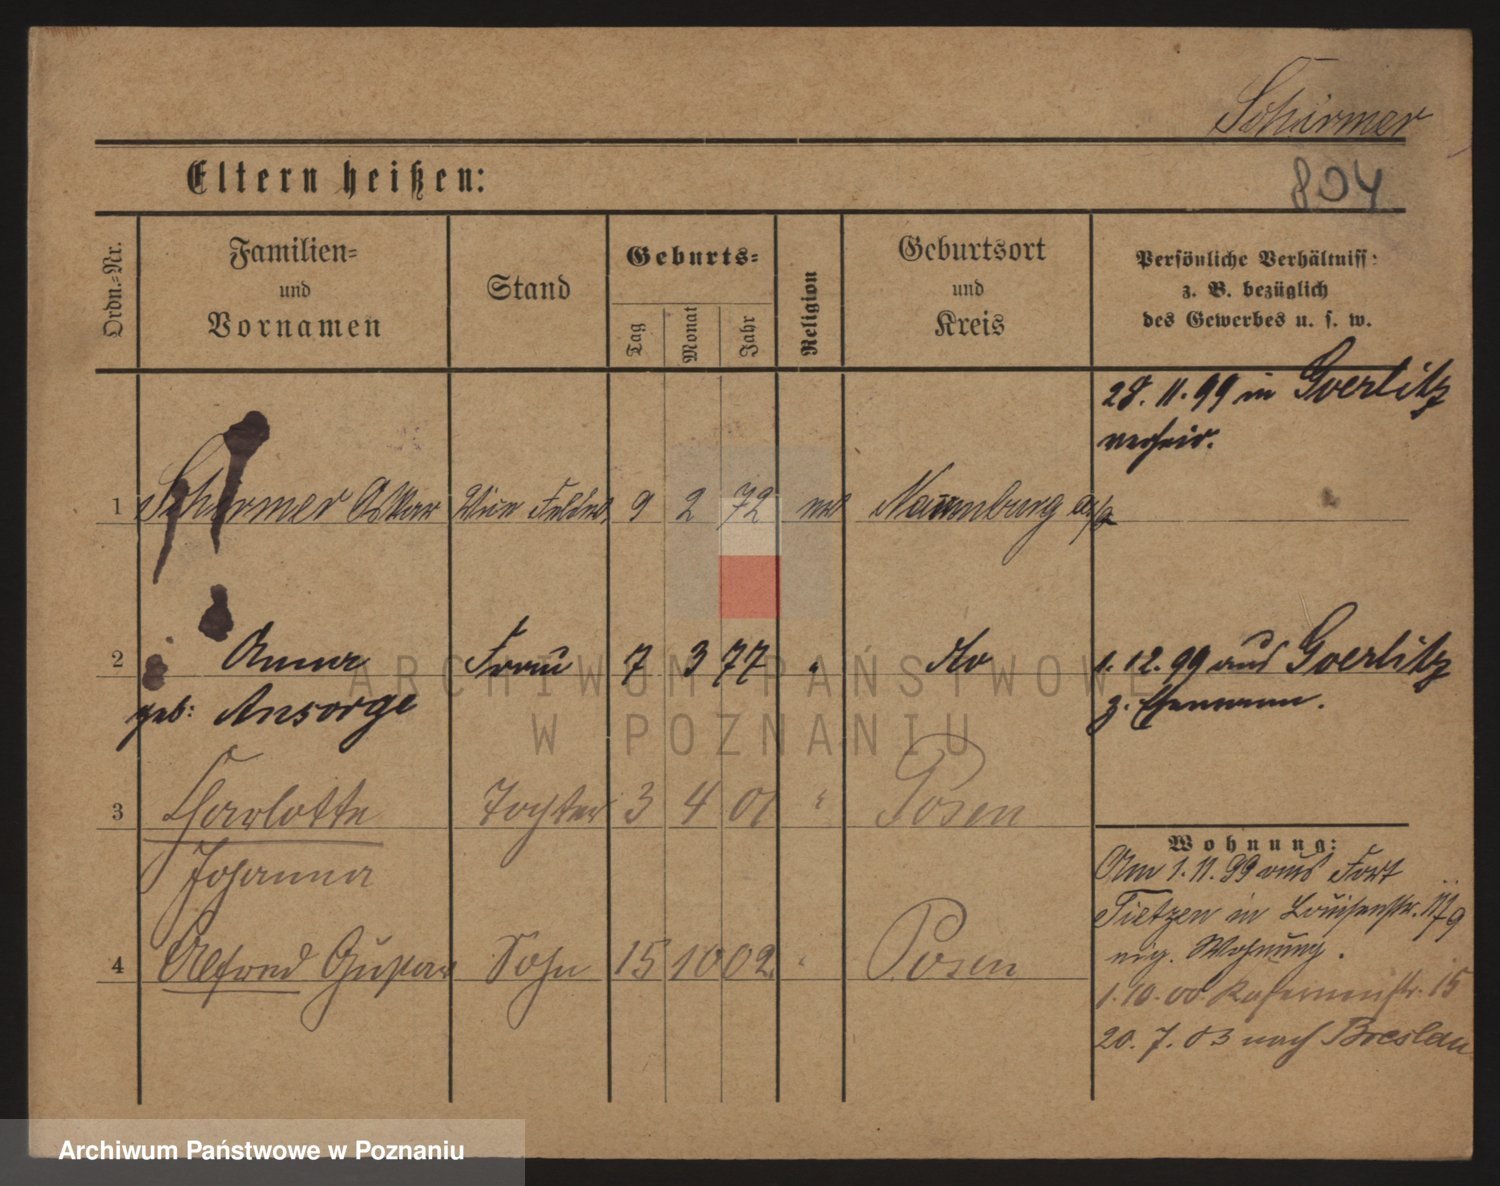 Schirmer
804
Eltern heißen:
Ordn.-Nr.
Familien-
und
Vornamen
Stand
Geburts-
Tag
Monat
Jahr
Religion
Geburtsort
und
Kreis
Persönliche Verhältniss:
z. B. bezüglich
des Gewerbes u. s. w.
28. 11. 99 in Goerlitz
verheir.
1 Schirmer Oskar Vice Feldw. 9 2 72 Naumburg a/Q
2 Anna Frau 7 3 77 " do 1. 12. 99 aus Goerlitz
geb: Ansorge z. Ehemann.
3 Charlotte Tochter 3 4 01 " Posen
Johanna
4 Alfred Gustav Sohn 15 10 02 " Posen
Wohnung:
Am 1. 11. 99 aus Fort
Tietzen in Louisenstr.
eig. Wohnung.
1. 10. 00 Kasernenstr. 15
20. 7. 03 nach Breslau
ARCHIWUM PAŃSTWOWE
W POZNANIU
Archiwum Państwowe w Poznaniu